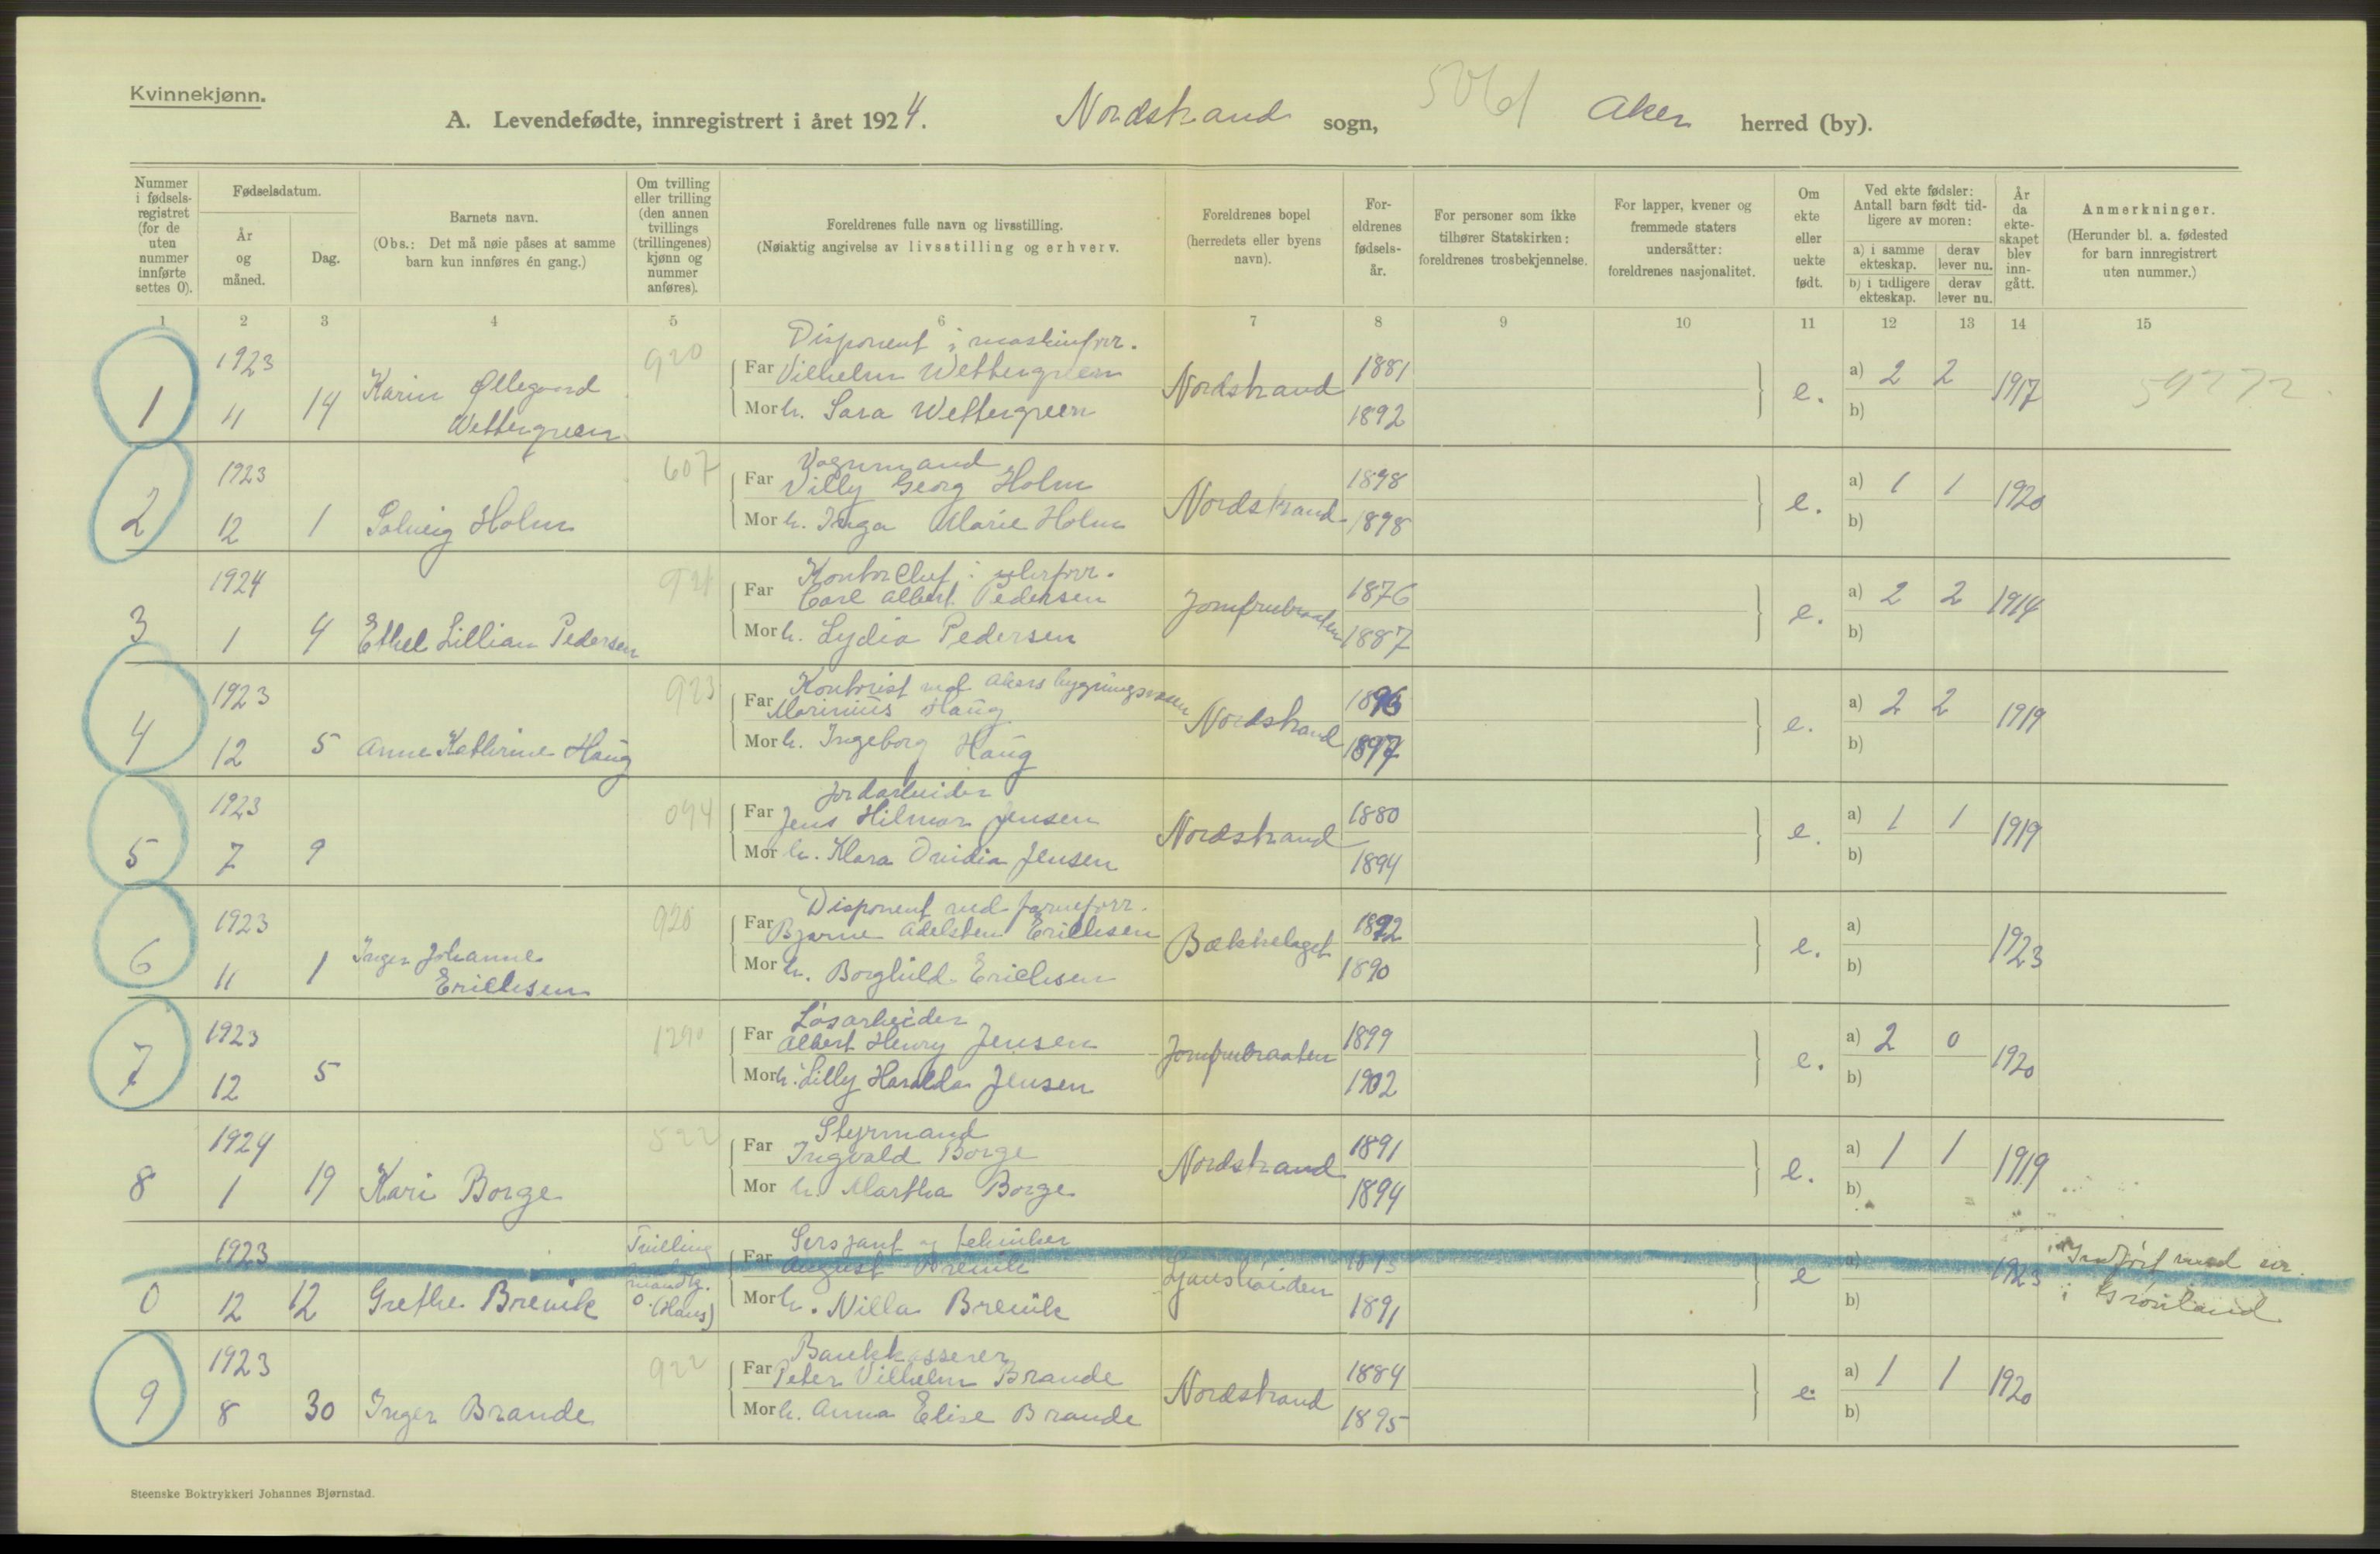 Kvinnekjønn.
A. Levendefødte, innregistrert i året 1924. Nordstrand sogn, Aker herred (by).
Nummer i fødselsregistret (for de uten nummer innførte settes 0).
Fødselsdatum.
År og måned.
Dag.
Barnets navn.
(Obs.: Det må nøie påses at samme barn kun innføres én gang.)
Om tvilling eller trilling (den annen tvillings (trillingenes) kjønn og nummer anføres).
Foreldrenes fulle navn og livsstilling.
(Nøiaktig angivelse av livsstilling og erhverv.
Foreldrenes bopel (herredets eller byens navn).
Foreldrenes fødselsår.
For personer som ikke tilhører Statskirken: foreldrenes trosbekjennelse.
For lapper, kvener og fremmede staters undersåtter: foreldrenes nasjonalitet.
Om ekte eller uekte født.
Ved ekte fødsler: Antall barn født tidligere av moren:
a) i samme ekteskap. derav lever nu.
b) i tidligere ekteskap. derav lever nu.
År da ekteskapet blev inngått.
Anmerkninger.
(Herunder bl. a. fødested for barn innregistrert uten nummer.)
1 2 3 4 5 6 7 8 9 10 11 12 13 14 15
Disponent i maskinforr.
1923 920 Far Vilhelm Wettergreen 1881 a) 2 2
1 4 14 Karin Øllegaard Wettergreen Mor h. Sara Wettergreen Nordstrand 1892 e. b) 1917 59272
Vognmand
1923 607 Far Villy Georg Holm 1898 a) 1 1
2 12 1 Solveig Holm Mor h. Inga Marie Holm Nordstrand 1898 e. b) 1920
Kontorchef i
1924 Far Carl Albert Pedersen 1876 a) 2 2
3 1 4 Ethel Lillian Pedersen Mor h. Lydia Pedersen Jomfrubraaten 1887 e. b) 1914
Kontorist ved Akers bygningsvesen
1923 923 Far Marinius Haug a) 2 2
4 12 5 Anne Kathrine Haug Mor h. Ingeborg Haug Nordstrand 1897 e. b) 1919
Jordarbeider
1923 094 Far Jens Hilmar Jensen 1880 a) 1 1
5 7 9 Mor h. Klara Ovidia Jensen Nordstrand 1894 e. b) 1919
Disponent ved
1923 920 Far Bjarne Adelsten Erichsen 1892 a)
6 11 1 Inger Johanne Erichsen Mor h. Borghild Erichsen Bækkelaget 1890 e. b) 1923
Løsarbeider
1923 1290 Far Albert Henry Jensen 1899 a) 2 0
7 12 5 Mor h. Lilly Haralda Jensen Jomfrubraaten 1902 e. b) 1920
Styrmand
1924 522 Far Ingvald Borge 1891 a) 1 1
8 1 19 Kari Borge Mor h. Martha Borge Nordstrand 1894 e. b) 1919
Sersjant og tekniker
1923 Tvilling mandlg. 0 (Hans) Far August Brevik a) Indført med nr.
0 12 12 Grethe Brevik Mor h. Nilla Brevik 1891 e b) 1923 i Grønland
Bankkasserer
1923 922 Far Peter Vilhelm Brande 1884 a) 1 1
9 8 30 Inger Brande Mor h. Anna Elise Brande Nordstrand 1895 e. b) 1920
Steenske Boktrykkeri Johannes Bjørnstad.